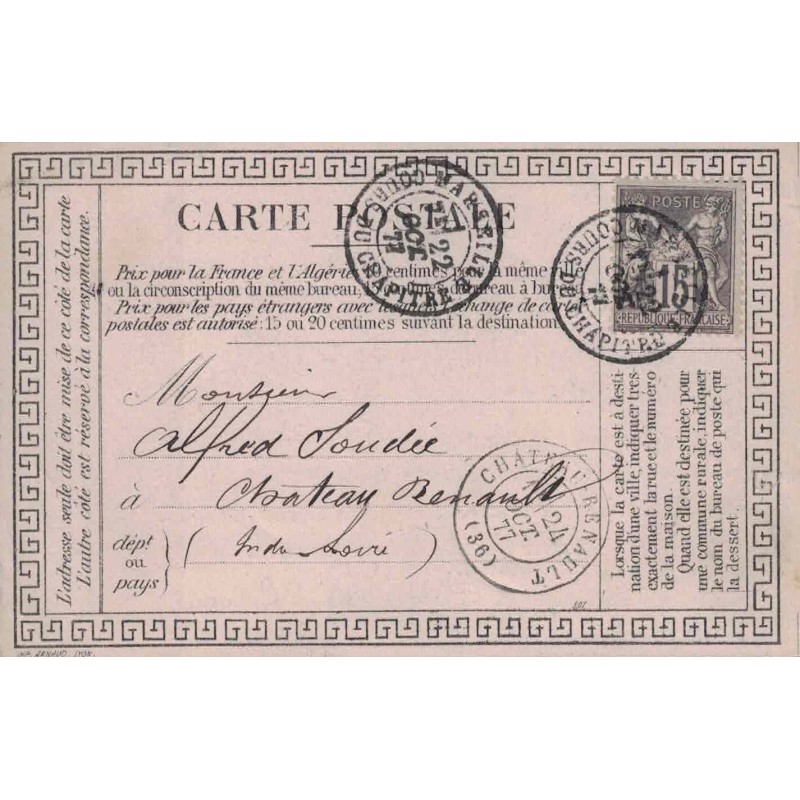 CARTE POSTALE
Prix pour la France et l'Algérie centimes pour la même vi
ou la circonscription du même bureau, centimes de bureau à bureau
Prix pour les pays étrangers avec lesquels l'échange de ca
postales est autorisé: 15 ou 20 centimes suivant la destination.
L'adresse seule doit être mise de ce côté de la carte
L'autre côté est réservé à la correspondance.
MARSEILLE
COURS DU CHAPITRE
22
OCT
77
POSTE
15
REPUBLIQUE FRANÇAISE
COURS DU CHAPITRE
Monsieur
Alfred Soudée
à Chateau Renault
dépt
ou
pays
(Indre Loire)
CHATEAU-RENAULT
24
OCT.
77
(36)
Lorsque la carte est à desti-
nation d'une ville, indiquer très
exactement la rue et le numéro
de la maison.
Quand elle est destinée pour
une commune rurale, indiquer
le nom du bureau de poste qui
la dessert.
ARNAUD LYON